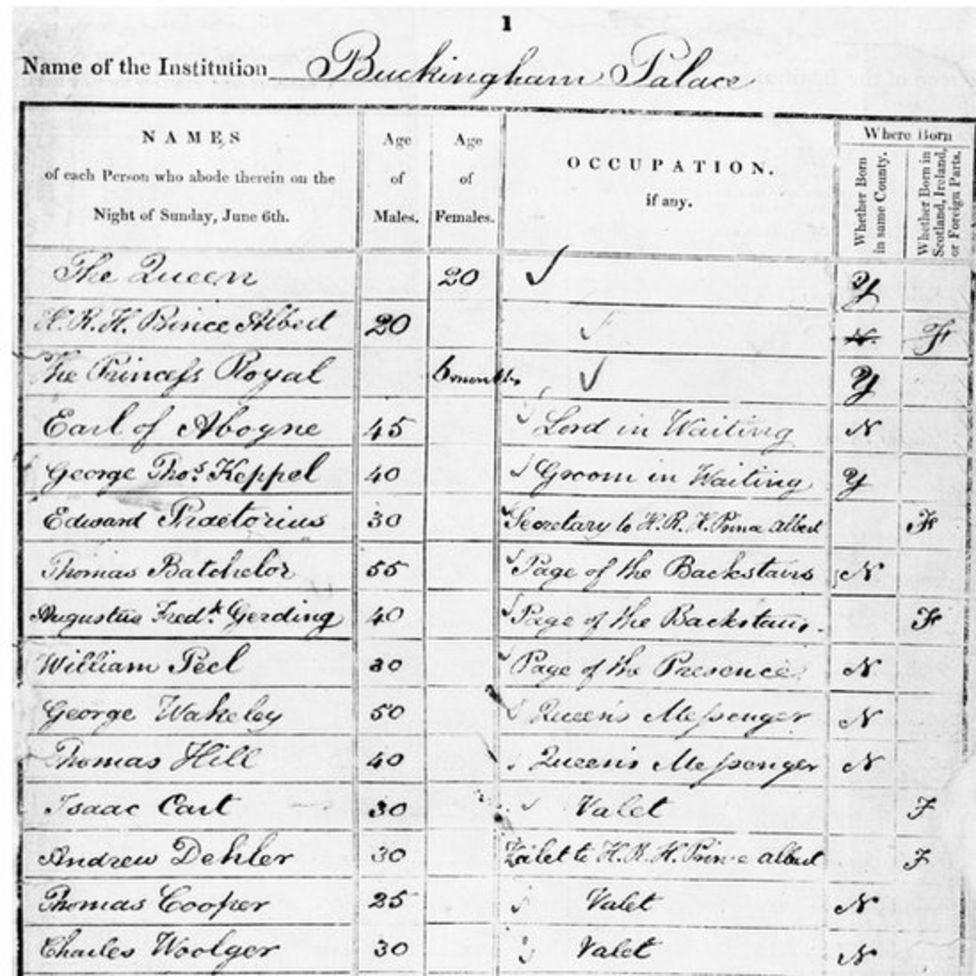 1
Name of the Institution Buckingham Palace
NAMES
of each Person who abode therein on the
Night of Sunday, June 6th.
Age
of
Males.
Age
of
Females.
OCCUPATION.
if any.
Where Born
Whether Born
in same County.
Whether Born in
Scotland, Ireland,
or Foreign Parts.
The Queen 20 Y
H.R.H. Prince Albert 20 N. F
The Princess Royal 6 months Y
Earl of Aboyne 45 Lord in Waiting N
George Thos. Keppel 40 Groom in Waiting Y
Edward Praetorius 30 Secretary to H.R.H. Prince Albert F
Thomas Batchelor 55 Page of the Backstairs N
Augustus Fredk. Gerding 40 Page of the Backstairs F
William Peel 30 Page of the Presence N
George Wakeley 50 Queen's Messenger N
Thomas Hill 40 Queen's Messenger N
Isaac Cart 30 Valet F
Andrew Dehler 30 Valet to H.R.H. Prince Albert F
Thomas Cooper 25 Valet N
Charles Woolger 30 Valet N